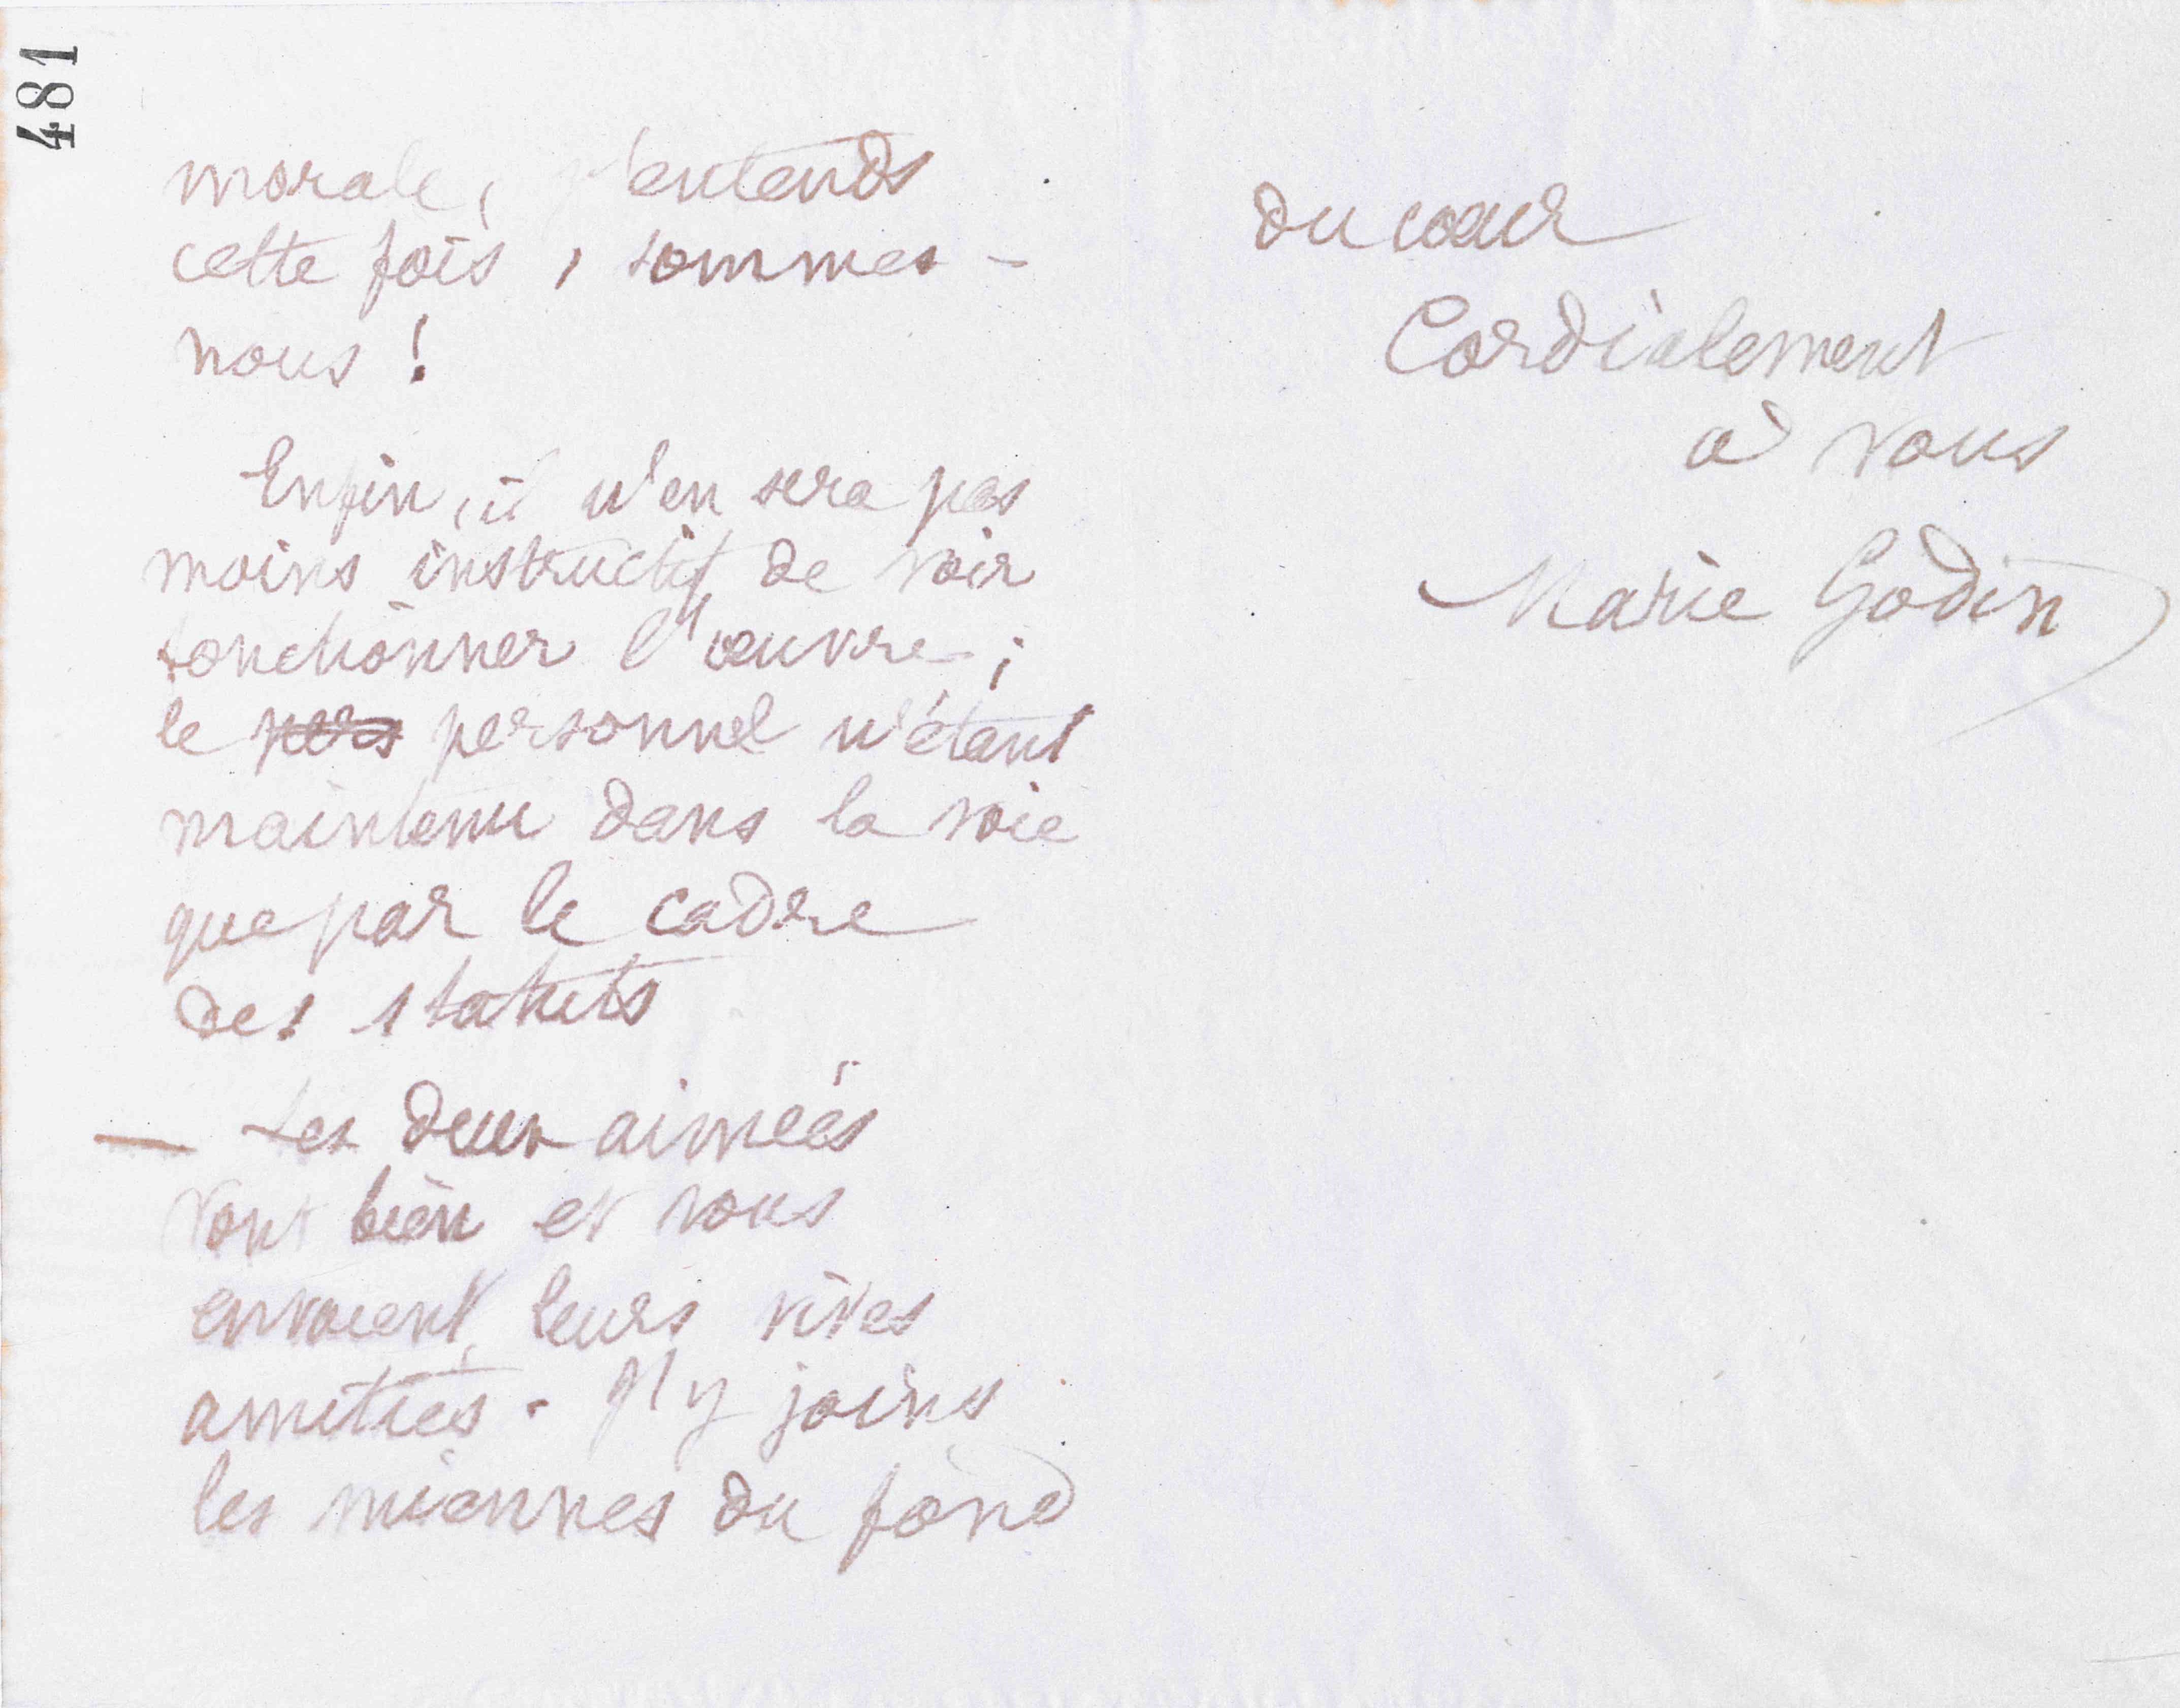 481
morale, j'entends
cette fois, sommes-
nous !
Enfin, il n'en sera pas
moins instructif de voir
fonctionner l'œuvre ;
le pers personnel n'étant
maintenu dans la voie
que par le cadre
des statuts
— Les deux aimées
vont bien et vous
envoient leurs vives
amitiés. J'y joins
les miennes du fond
du cœur
Cordialement
à vous
Marie Godin